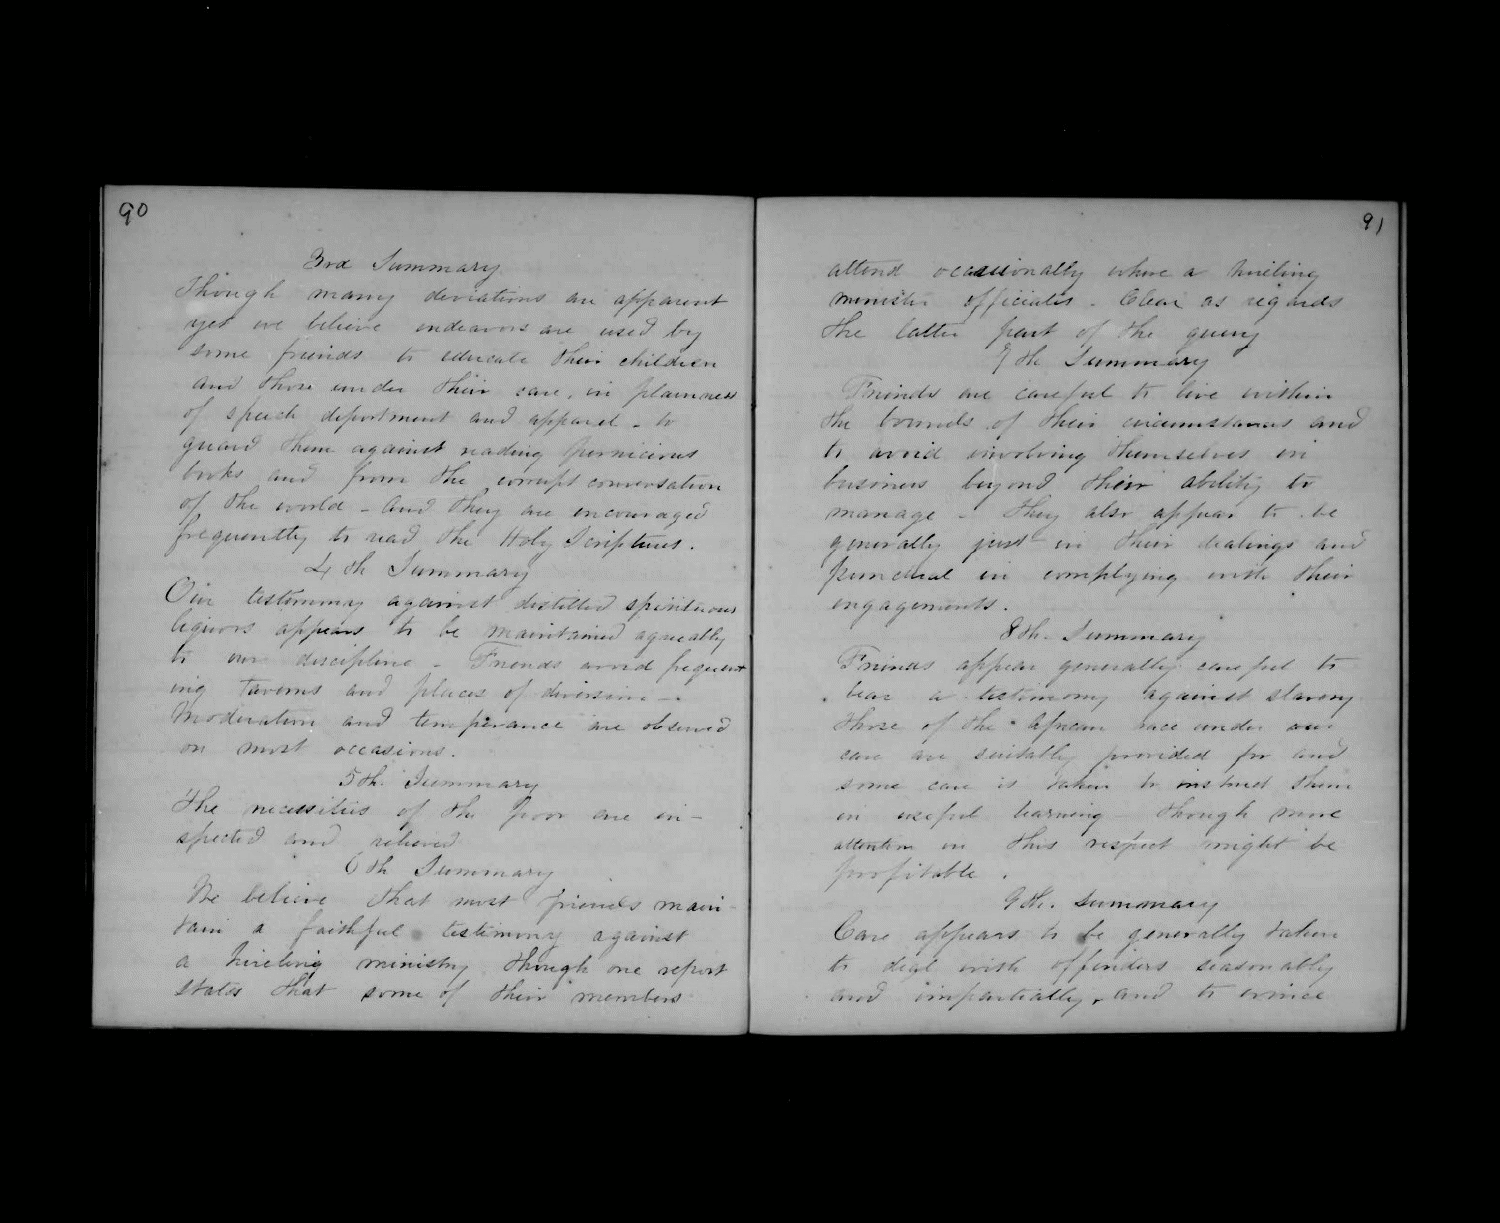 90
3rd Summary
Though many deviations are apparent
yet we believe endeavors are used by
some friends to educate their children
and those under their care, in plainness
of speech deportment and apparel - to
guard them against reading pernicious
books and from the corrupt conversation
of the world - and they are encouraged
frequently to read the Holy Scriptures.
4th Summary
Our testimony against distilled spirituous
liquors appears to be maintained agreeably
to our discipline - Friends avoid frequent
ing taverns and places of diversion -
Moderation and temperance are observed
on most occasions.
5th. Summary
The necessities of the poor are in-
spected and relieved
6th Summary
We believe that most friends main-
tain a faithful testimony against
a hireling ministry though one report
states that some of their members
91
attend occasionally where a hireling
minister officiates. Clear as regards
the latter part of the query
7th Summary
Friends are careful to live within
the bounds of their circumstances and
to avoid involving themselves in
business beyond their ability to
manage - They also appear to be
generally just in their dealings and
punctual in complying with their
engagements.
8th. Summary
Friends appear generally careful to
bear a testimony against slavery
those of the African race under our
care are suitably provided for and
some care is taken to instruct them
in useful learning - though more
attention in this respect might be
profitable.
9th. Summary
Care appears to be generally taken
to deal with offenders seasonably
and impartially, and to evince